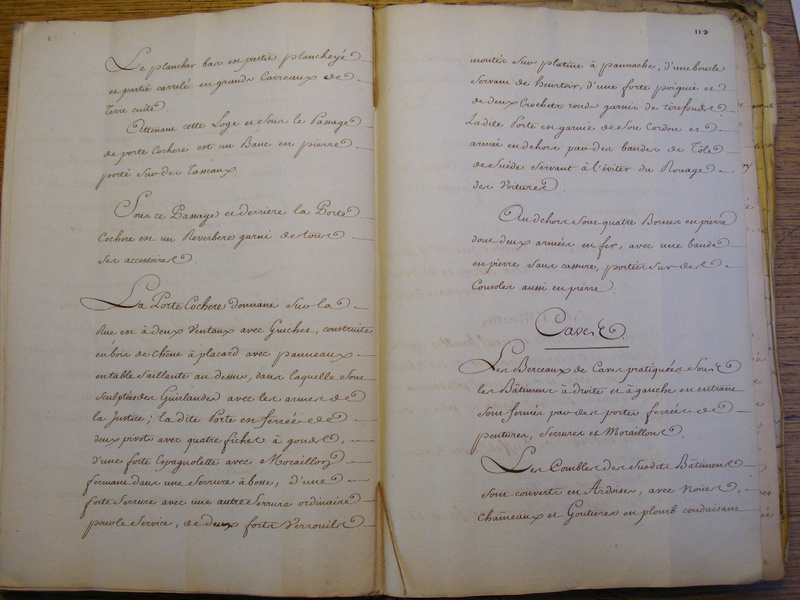 Le plancher bas en partie plancheyé
en partie carrelé en grands Carreaux de
Terre cuite.
Attenant cette Loge et sous le Passage
de porte Cochere est un Banc en pierre
porté sur des Tasseaux.
Sous ce Passage et derriere la Porte
Cochere est un Reverbere garni de tous
ses accessoires.
La Porte Cochere donnant sur la
Rue est à deux Ventaux avec Guichet, construite
en bois de chêne à placard avec panneaux
en table saillante au dessus, dans laquelle sont
sculptés des Guirlandes avec les armes de
la Justice; la dite Porte est ferrée de
deux pivots avec quatre fiches à gonds,
d'une forte Espagnolette avec Moraillon
fermant dans une serrure à bosse, d'une
forte serrure avec une autre serrure ordinaire
pour le service, de deux forts verrouils
112
montés sur platine à pannache, d'une boucle
servant de heurtoir, d'une forte poignée et
de deux Crochets ronds garni de tirefonds.
Ladite Porte est garnie de son Cordon et
armée en dehors par des bandes de Tôle
de Suéde servant à l'éviter du Rouage
des Voitures.
Au dehors sont quatre Bornes en pierre
dont deux armées en fer, avec une bande
en pierre sans cassure, portées sur des
Consoles aussi en pierre
Caves.
Les Berceaux de Caves pratiquées sous
les Bâtimens à droite et à gauche en entrant
sont fermés par des portes ferrées de
pentures, serrures et Moraillons.
Les Combles des susdits Bâtimens
sont couverts en Ardoises, avec Noües,
chaîneaux et Goutieres en plomb conduisant